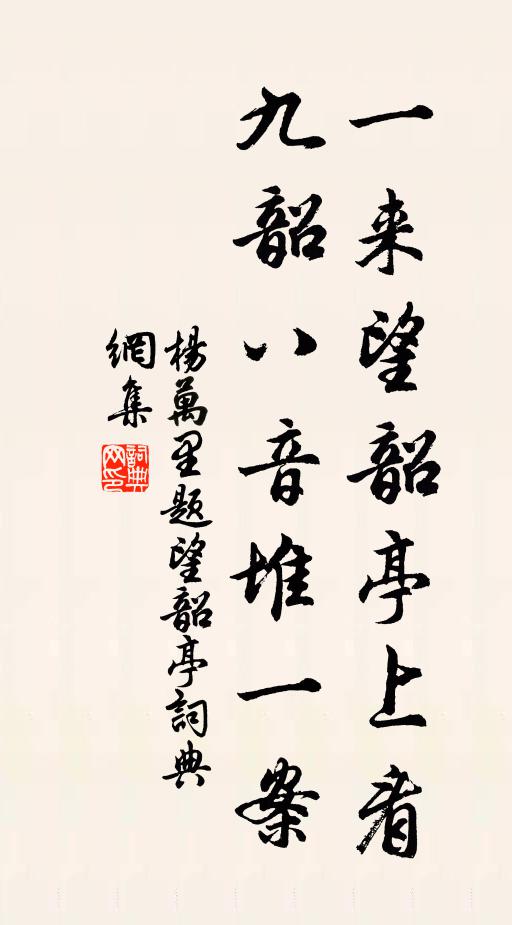 一来望韶亭上看
九韶八音堆一案
楊萬里题望韶亭詞典
網集
詞典
网印